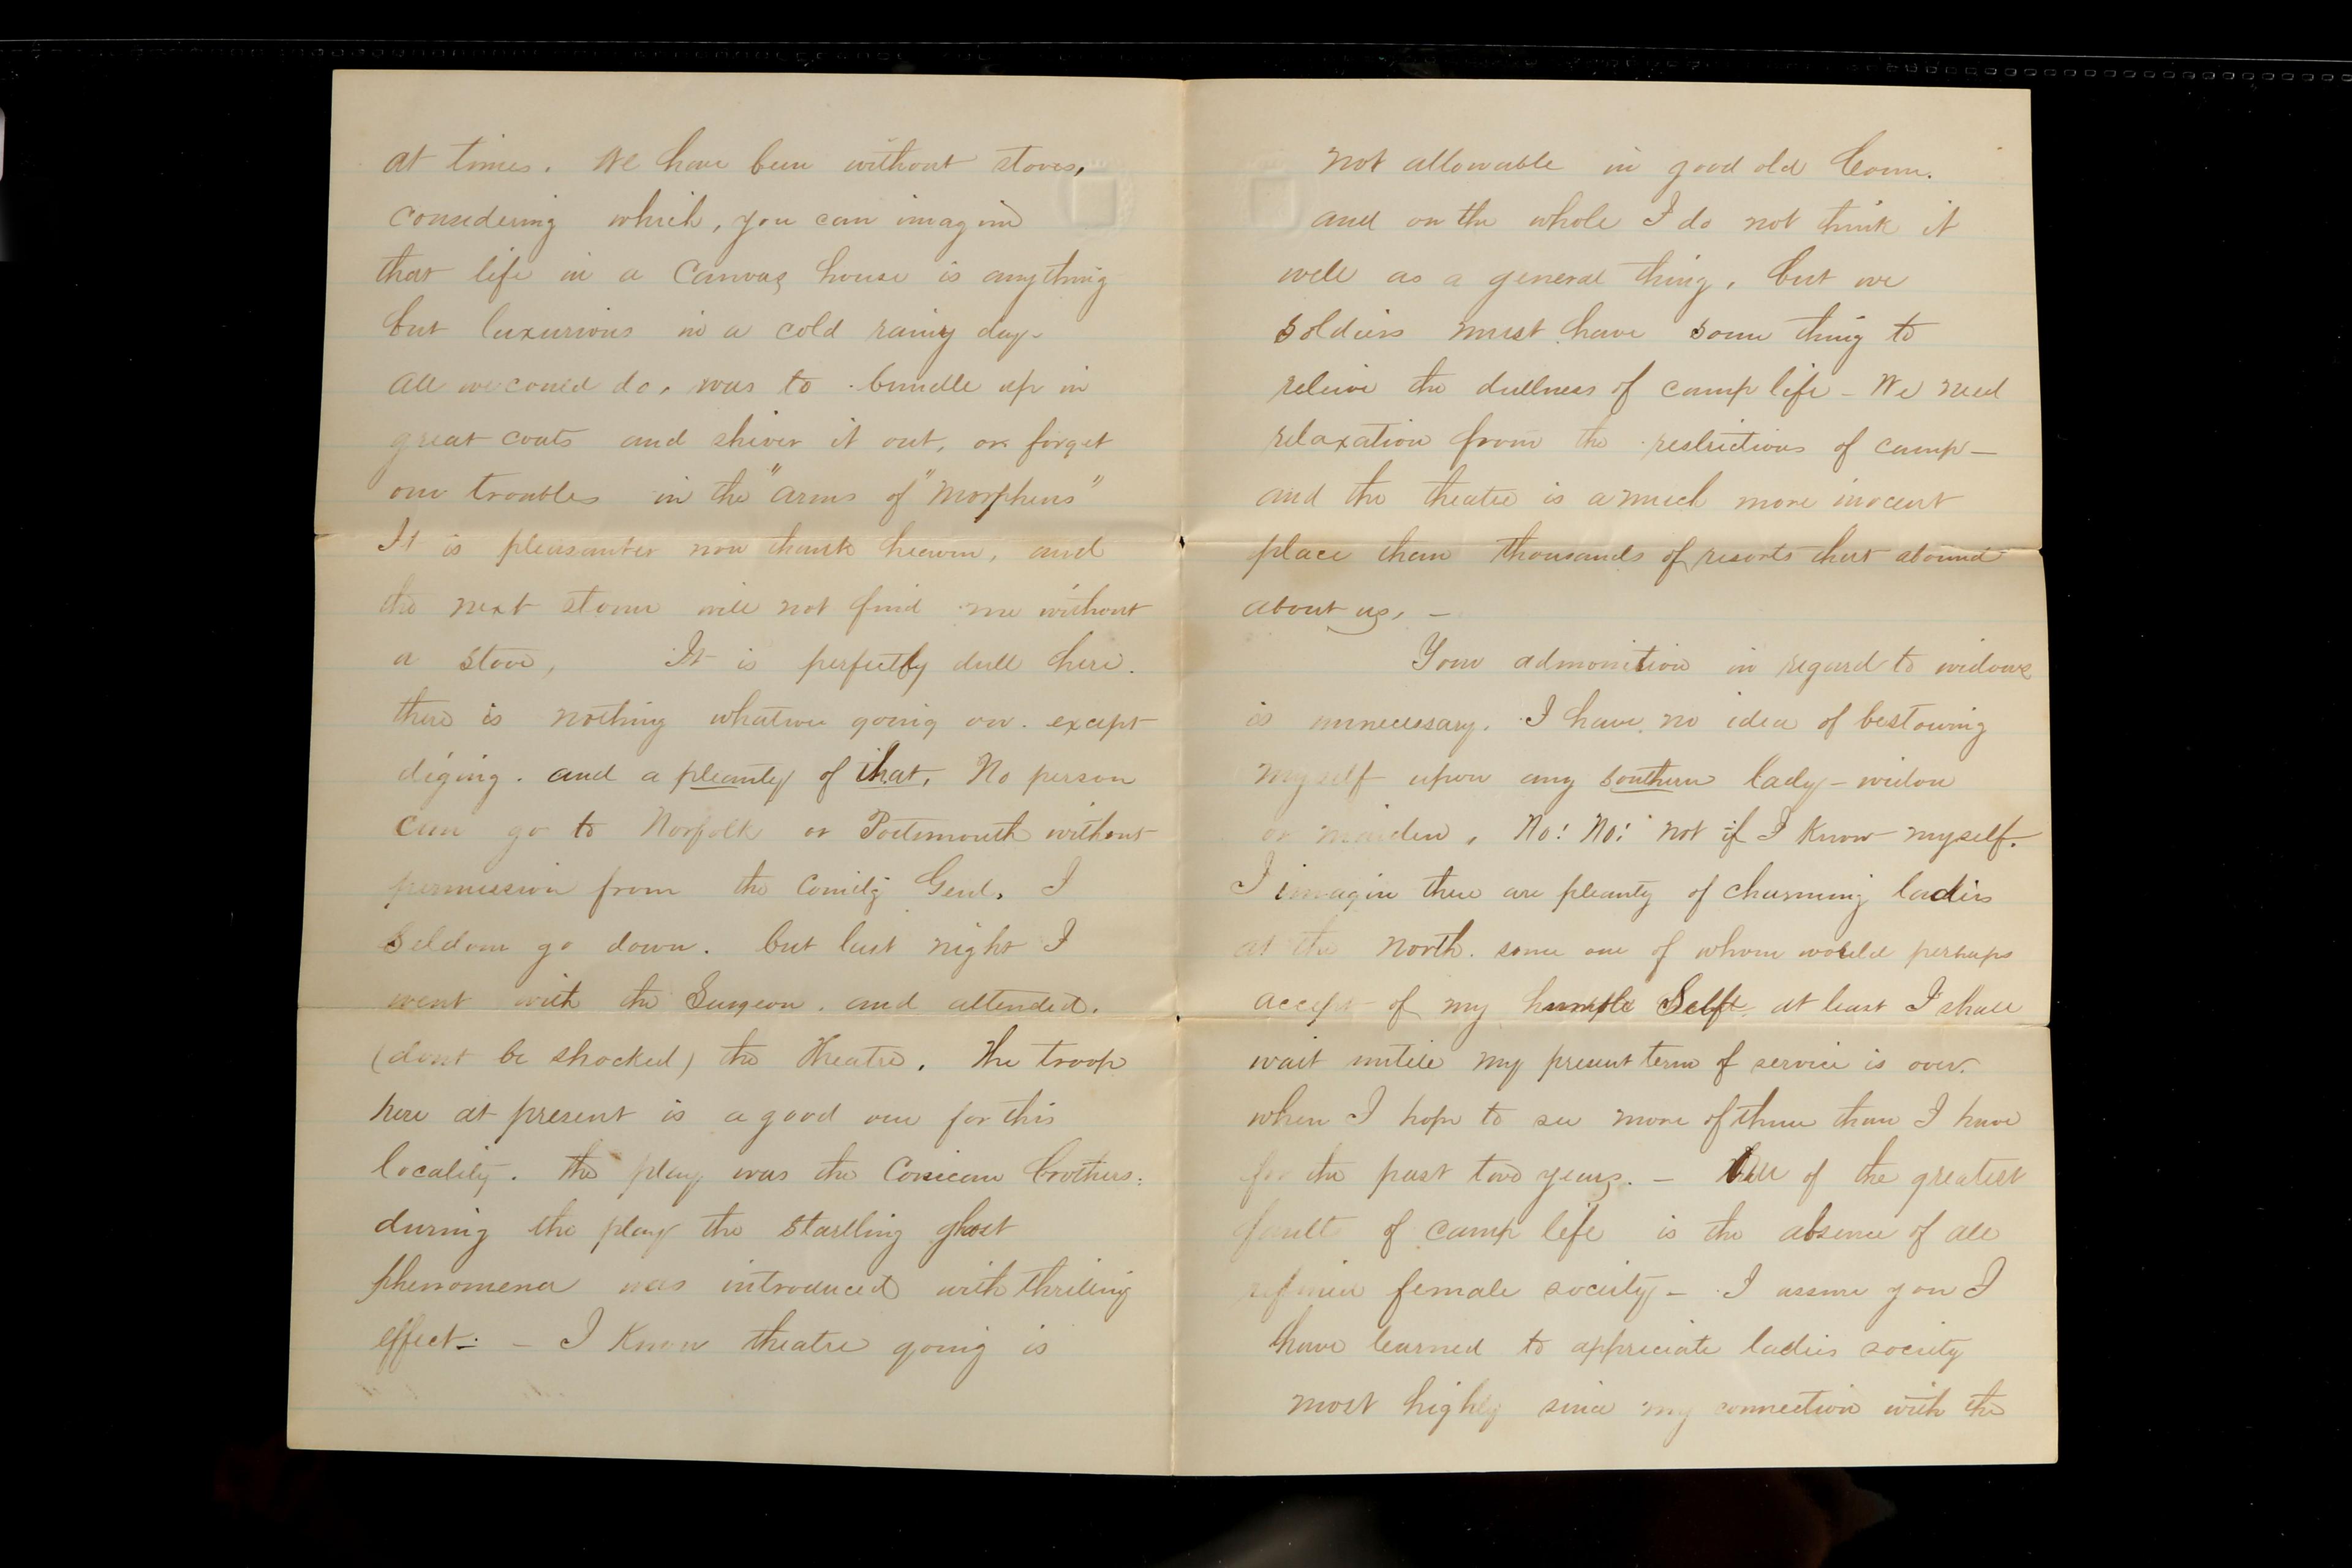 at times. We have been without stoves,
considering which, you can imagine
that life in a Canvas house is anything
but luxurious in a cold rainy day-
All we could do, was to bundle up in
great coats and shiver it out, or forget
our troubles in the "arms of "Morpheus"
It is pleasanter now thank heaven, and
the next storm will not find me without
a stove, It is perfectly dull here.
there is nothing whatever going on. except
diging. and a pleanty of that. No person
can go to Norfolk or Portsmouth without
permission from the Comdg Genl. I
Seldom go down. but last night I
went with the Surgeon. and attended.
(dont be shocked) the Theatre. The troop
here at present is a good one for this
locality. The play was the Corsican brothers:
during the play the startling ghost
phenomena was introduced with thriling
effect. - I know theatre going is
not allowable in good old Conn.
and on the whole I do not think it
well as a general thing, but we
soldiers must have some thing to
releive the dullness of camp life - We need
relaxation from the restrictions of camp-
and the theatre is a much more inocent
place than thousands of resorts that abound
about us, -
Your admonition in regard to widows
is unnecessary. I have no idea of bestowing
myself upon any southern lady - widow
or maiden, No! No! not if I know myself.
I imagin there are pleanty of charming ladies
at the north. some one of whom would perhaps
accept of my humble Self. at least I shall
wait untill my present term of service is over.
when I hope to see more of them than I have
for the past two years. - One of the greatest
faults of camp life is the absence of all
refined female society - I assure you I
have learned to appreciate ladies society
most highly since my connection with the